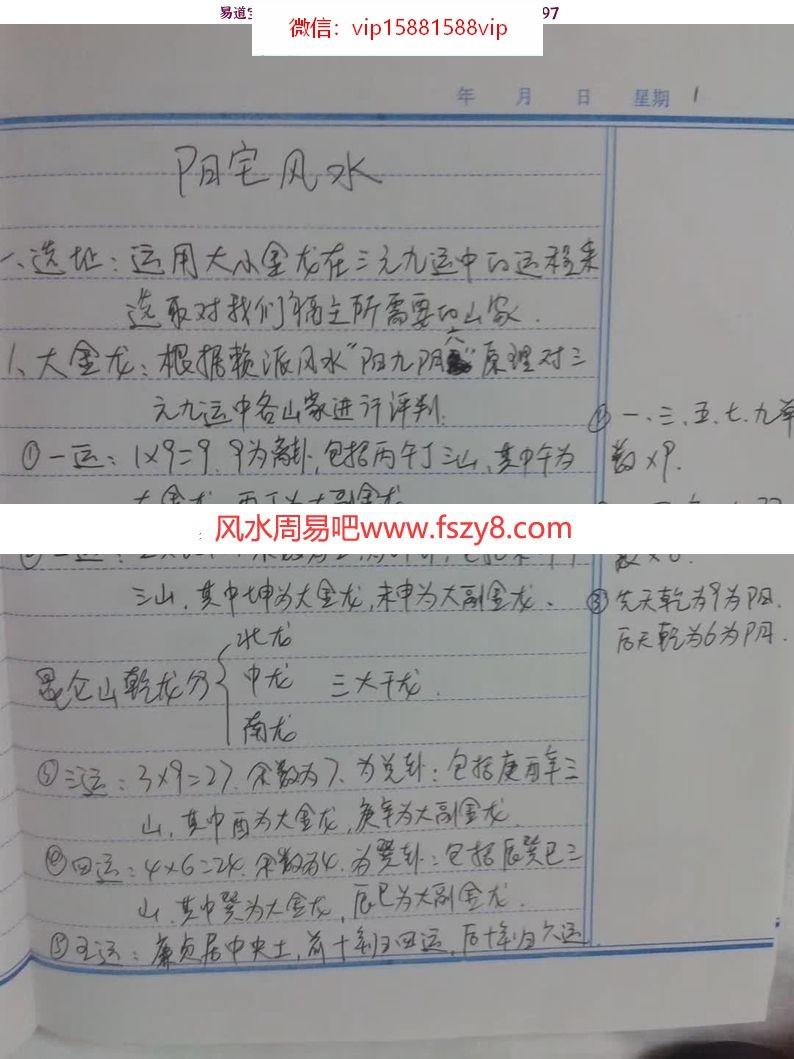 易道
97
微信：vip15881588vip
年 月 日 星期 1
阳宅风水
一、选址：运用大小金龙在三元九运中的运程来
选取对我们福主所需要的山家.
1、大金龙：根据赖派风水"阳九阴六"原理对三
元九运中各山家进行评判.
①一运：1×9=9. 9为离卦,包括丙午丁三山,其中午为
大金龙,丙丁为大副金龙
风水周易吧www.fszy8.com
三山,其中坤为大金龙,未申为大副金龙.
昆仑山乾龙分
北龙
中龙
南龙
三大干龙.
③三运：3×9=27.余数为7.为兑卦：包括庚酉辛三
山,其中酉为大金龙,庚辛为大副金龙.
④四运：4×6=24.余数为4.为巽卦：包括辰巽巳三
山.其中巽为大金龙,辰巳为大副金龙.
⑤五运：廉贞居中央土,前十年归四运,后十年归六运.
①一、三、五、七、九单
数×9.
③先天乾为9为阳.
后天乾为6为阴.